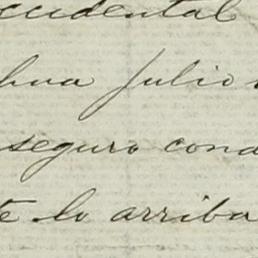 ccidental
hua Julio
seguro cond
te lo arriba